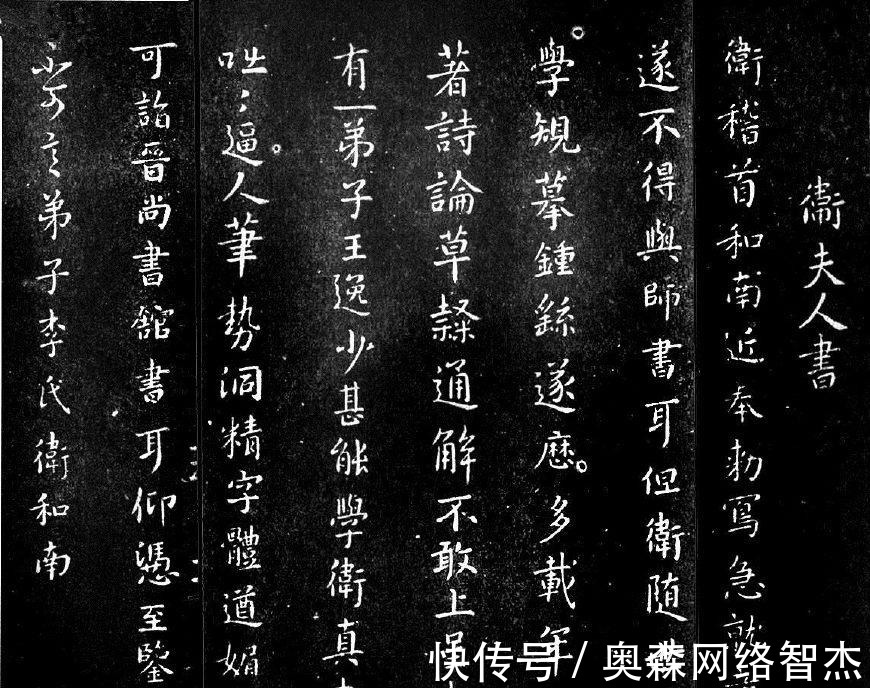 衞夫人書
衛稽首和南近奉勅寫急就
遂不得與師書耳但衛随世
學規摹鍾繇遂歷多載年
著詩論草隸通解不敢上呈
有一弟子王逸少甚能學衛真
咄〻逼人筆勢洞精字體遒媚
可詣晉尚書舘書耳仰憑至鑒
不可言弟子李氏衛和南
快传号 / 奥森网络智杰